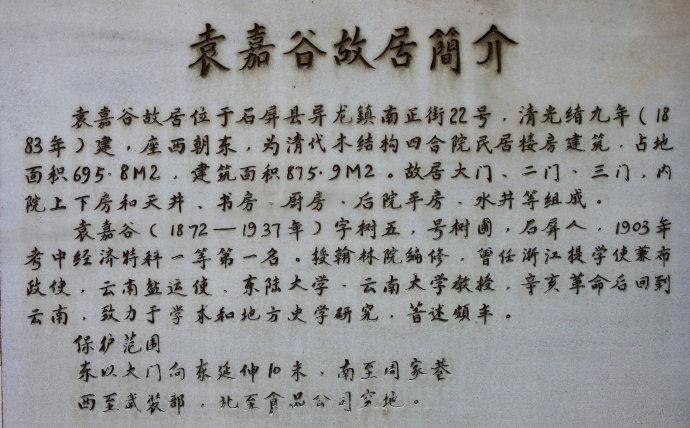 袁嘉谷故居簡介
袁嘉谷故居位于石屏县异龙鎮南正街22号，清光绪九年（18
83年）建，座西朝东，为清代木结构四合院民居楼房建筑，占地
面积695·8M2，建筑面积875·9M2。故居大门、二门、三门，内
院上下房和天井、书房、厨房、后院平房、水井等组成。
袁嘉谷（1872—1937年）字树五，号树圃，石屏人，1903年
考中经济特科一等第一名。授翰林院编修，曾任浙江提学使兼布
政使，云南盐运使、东陆大学、云南大学教授，辛亥革命后回到
云南，致力于学术和地方史学研究，著述颇丰。
保护范围
东以大门向东延伸10米，南至周家巷
西至武装部，北至食品公司空地。